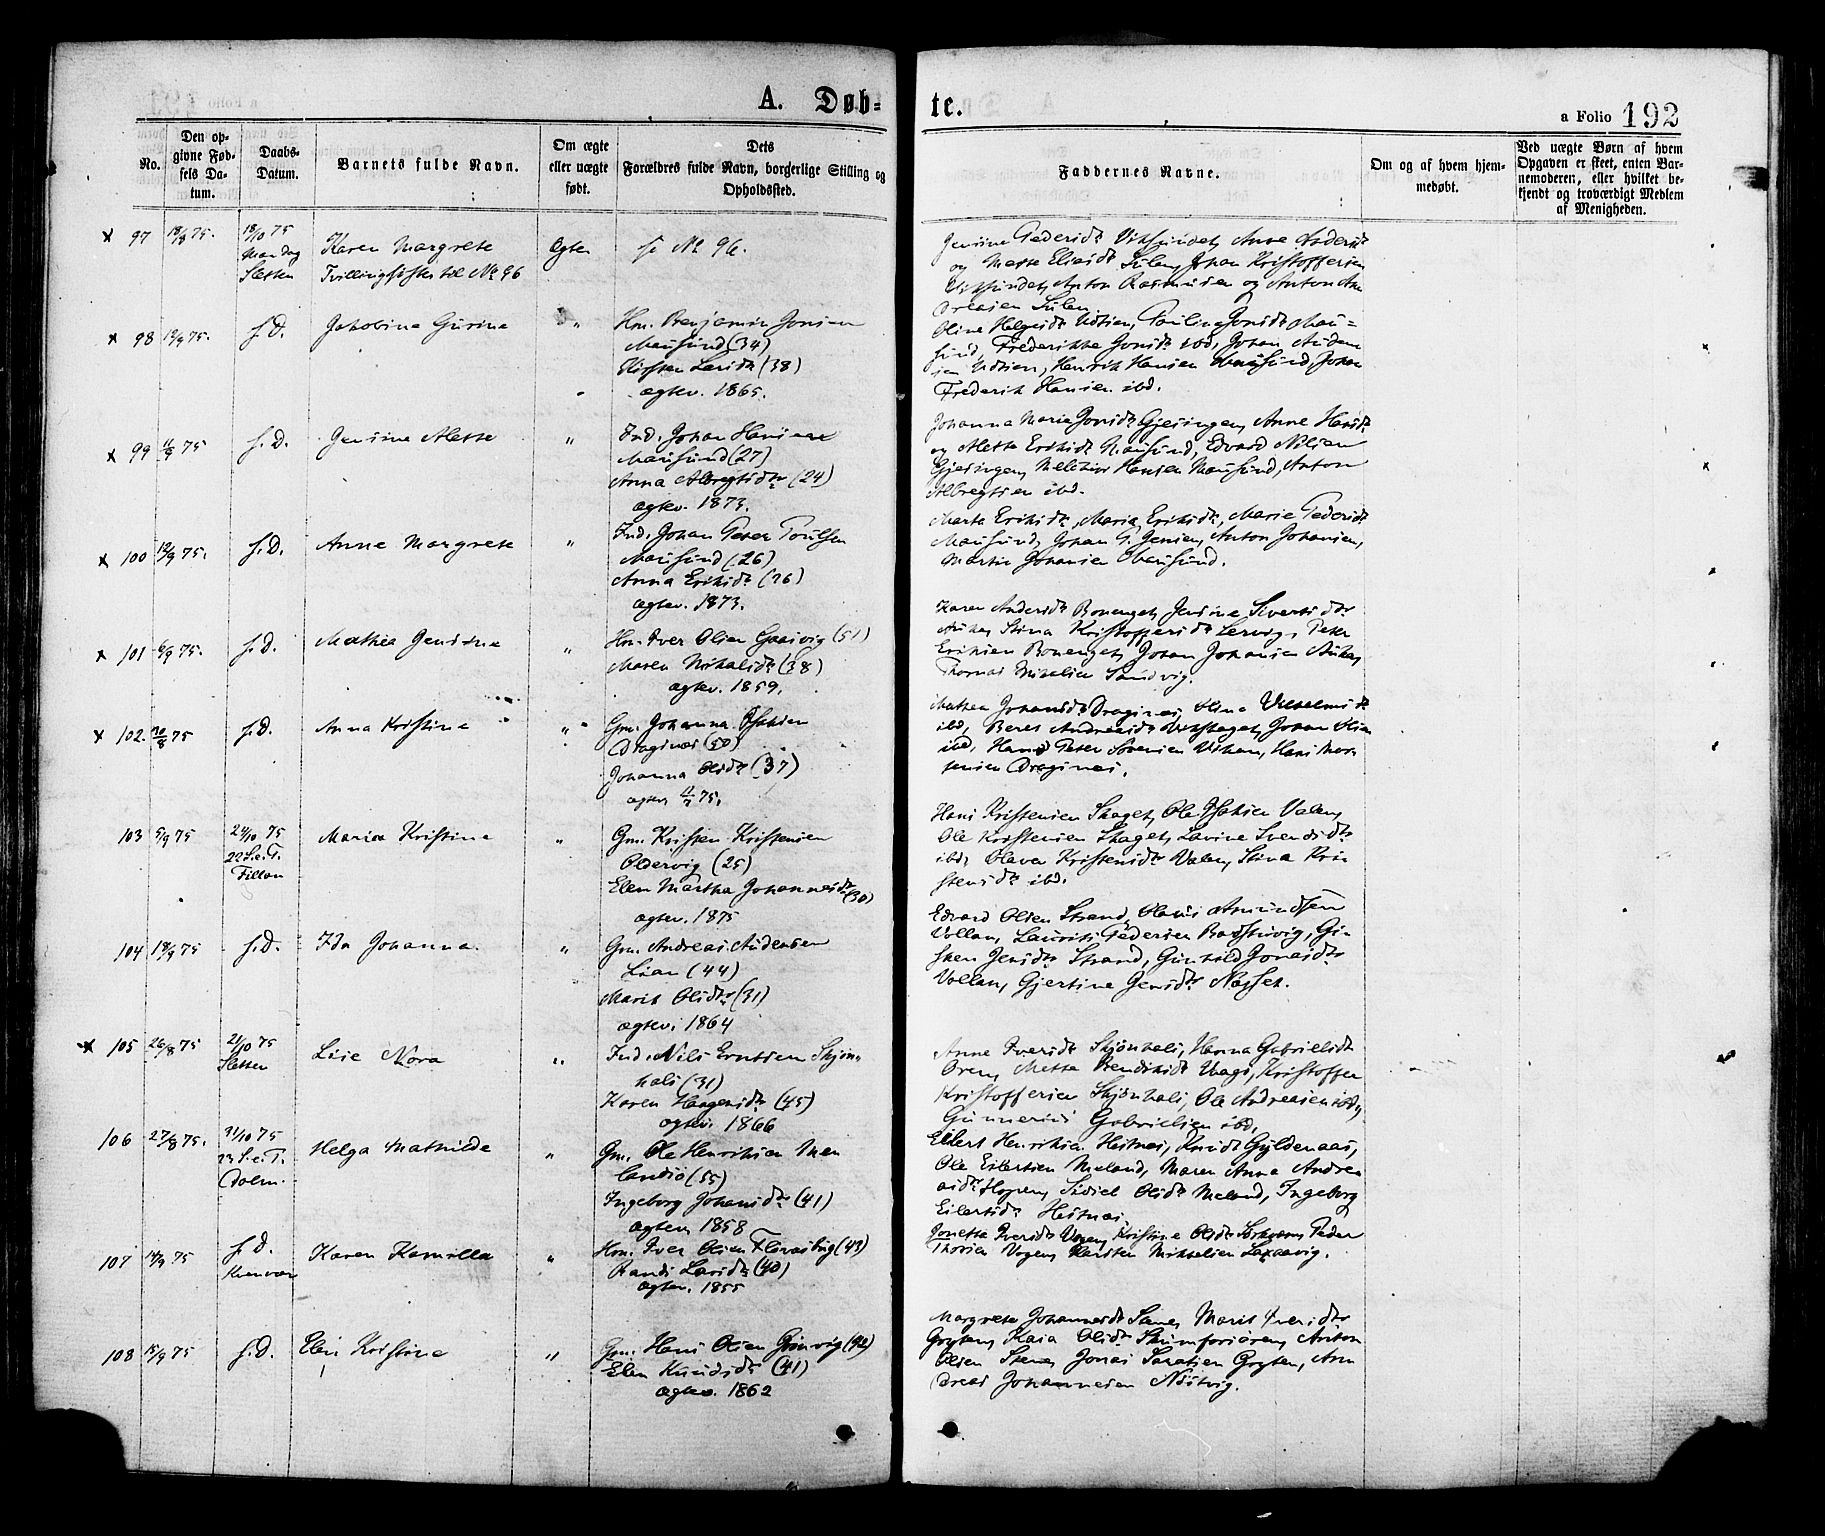 A. Døb-
te.
a Folio 192
No.
Den op-
givne Fød-
sels Da-
tum.
Daabs-
Datum.
Barnets fulde Navn.
Om ægte
eller uægte
født.
Dets
Forældres fulde Navn, borgerlige Stilling og
Opholdssted.
Faddernes Navne.
Om og af hvem hjem-
medøbt.
Ved uægte Børn af hvem
Opgaven er skeet, enten Bar-
nemoderen, eller hvilket be-
kjendt og troværdigt Medlem
af Menigheden.
× 97 75. 18/10 75
Mandag
Sletten
Karen Margrete
Tvillingsøster til No 96
Ægte
se No 96.
og Mette Eliasdtr Sulen, Johan Kristoffersen
Anton Rasmusen og Anton An
dreasen Sulen
× 98 75. s.D. Jakobina Gurina "
Hm. Benjamin Jonsen
Mausund (34)
Kirsten Larsdtr (38)
ægtev. 1865.
Oline Helgesdtr Udsien, Paulina Jonsdtr Mau=
sund, Frederikke Jonsdtr ibd, Johan Auden
sen Udsien, Henrik Hansen Mausund, Johan
Frederik Hansen ibd.
× 99 11/9 75 s.D. Jensine Mette "
Ind. Johan Hansen
Mausund (27)
Anna Albregtsdtr (24)
ægtev. 1873.
Johanna Maria Jonsdtr Gjesingen, Anne Hansdtr
og Mette Eriksdtr Mausund, Edvard Nilsen
Gjesingen, Melchior Hansen Mausund, Anton
Albregtsen ibd.
× 100 12/9 75. s.D. Anne Margrete "
Ind. Johan Peter Poulsen
Mausund (26)
Anna Eriksdtr (26)
ægtev. 1873.
Marta Eriksdtr, Maria Eriksdtr, Marie Pedersdtr
Mausund, Johan P. Jensen, Anton Johansen,
Martin Johansen Mausund.
× 101 6/9 75. s.D. Mathea Jensine "
Hm. Iver Olsen Gaasvig (51)
Maren Mikalsdtr (38)
ægtev. 1859.
Karen Andersdtr Bonenget, Jensine Sivertsdtr
Aukan, Stina Kristoffersdtr Lervig, Peter
Eriksen Bonenget, Johan Johansen Aukan,
Thomas Mikelsen Sandvig.
× 102. 30/8 75 s.D. Anna Kristine "
Gm. Johanna Isaksen
Dragsnes (50)
Johanna Olsdtr (37)
ægtev. 75.
Mathea Johansdtr Dragsnes, Olina Vilhelmsdtr
ibd, Beret Andreasdtr Johan Olsen
ibd, Hans Peter Sørensen Hans Mor
tensen Dragsnes.
103 5/9 75 24/10 75
22 S.e.T.
Fillan
Maria Kristina "
Gm. Kristen Kristensen
Oldervig (25)
Elen Martha Johannesdtr (30)
ægtev. 1875
Hans Kristensen Skaget, Ole Isaksen Valen,
Ole Kristensen Skaget, Lavine Svendsdtr
ibd, Olava Kristensdtr Valen, Stina Kri
stensdtr ibd.
104 19/9 75 s.D. Ida Johanna. "
Gm. Andreas Audensen
Lian (44)
Marit Olsdtr (31)
ægtev. 1864
Edvard Olsen Strand, Olaus Amundsen
Vollan, Laurits Pedersen Badstuvig, Gi-
sken Jensdtr Strand, Gunhild Jonasdtr
Vollan, Gjertine Jensdtr Nesset.
× 105 26/8 75 21/10 75
Sletten
Lise Nora "
Ind. Nils Erntsen Skjøn-
hals (31)
Karen Haagensdtr (45)
ægtev. 1866
Anne Iversdtr Skjønhals, Hanna Gabrielsdtr
Øren, Metta Vaagø, Kristoffer
Kristoffersen Skjønhals, Ole Andreasen ibd,
Gunnerius Gabrielsen ibd.
106 27/8 75. 31/10 75
23 S.e.T.
Dolm.
Helga Mathilde "
Gm. Ole Henriksen Mee
landsø (55)
Ingeborg Johansdtr (41)
ægtev. 1858
Eilert Henriksen Hestnes, Knud Gyldenaas,
Ole Eilertsen Meland, Maren Anna Andre
asdtr Hopen, Sidsel Olsdtr Meland, Ingeborg
Eilertsdtr Hestnes.
107 14/9 75 s.D.
Kvenvær
Karen Kamilla "
Hm. Iver Olsen (43)
Randi Larsdtr (40)
ægtev. 1855
Jonetta Iversdtr Vogen, Kristine Olsdtr Peder
Thorsen Vogen, Karsten Mikkelsen Laxaavig.
108 15/9 75 s.D. Elen Kristine "
Gm. Hans Olsen Grønvig (42)
Elen Knudsdtr (41)
ægtev. 1862
Margrete Johannesdtr Stene, Marit Iversdtr
Gryten, Kaia Olsdtr Skumforsøren, Anton
Olsen Stene, Jonas Gryten, An
dreas Johannesen Nustvig.